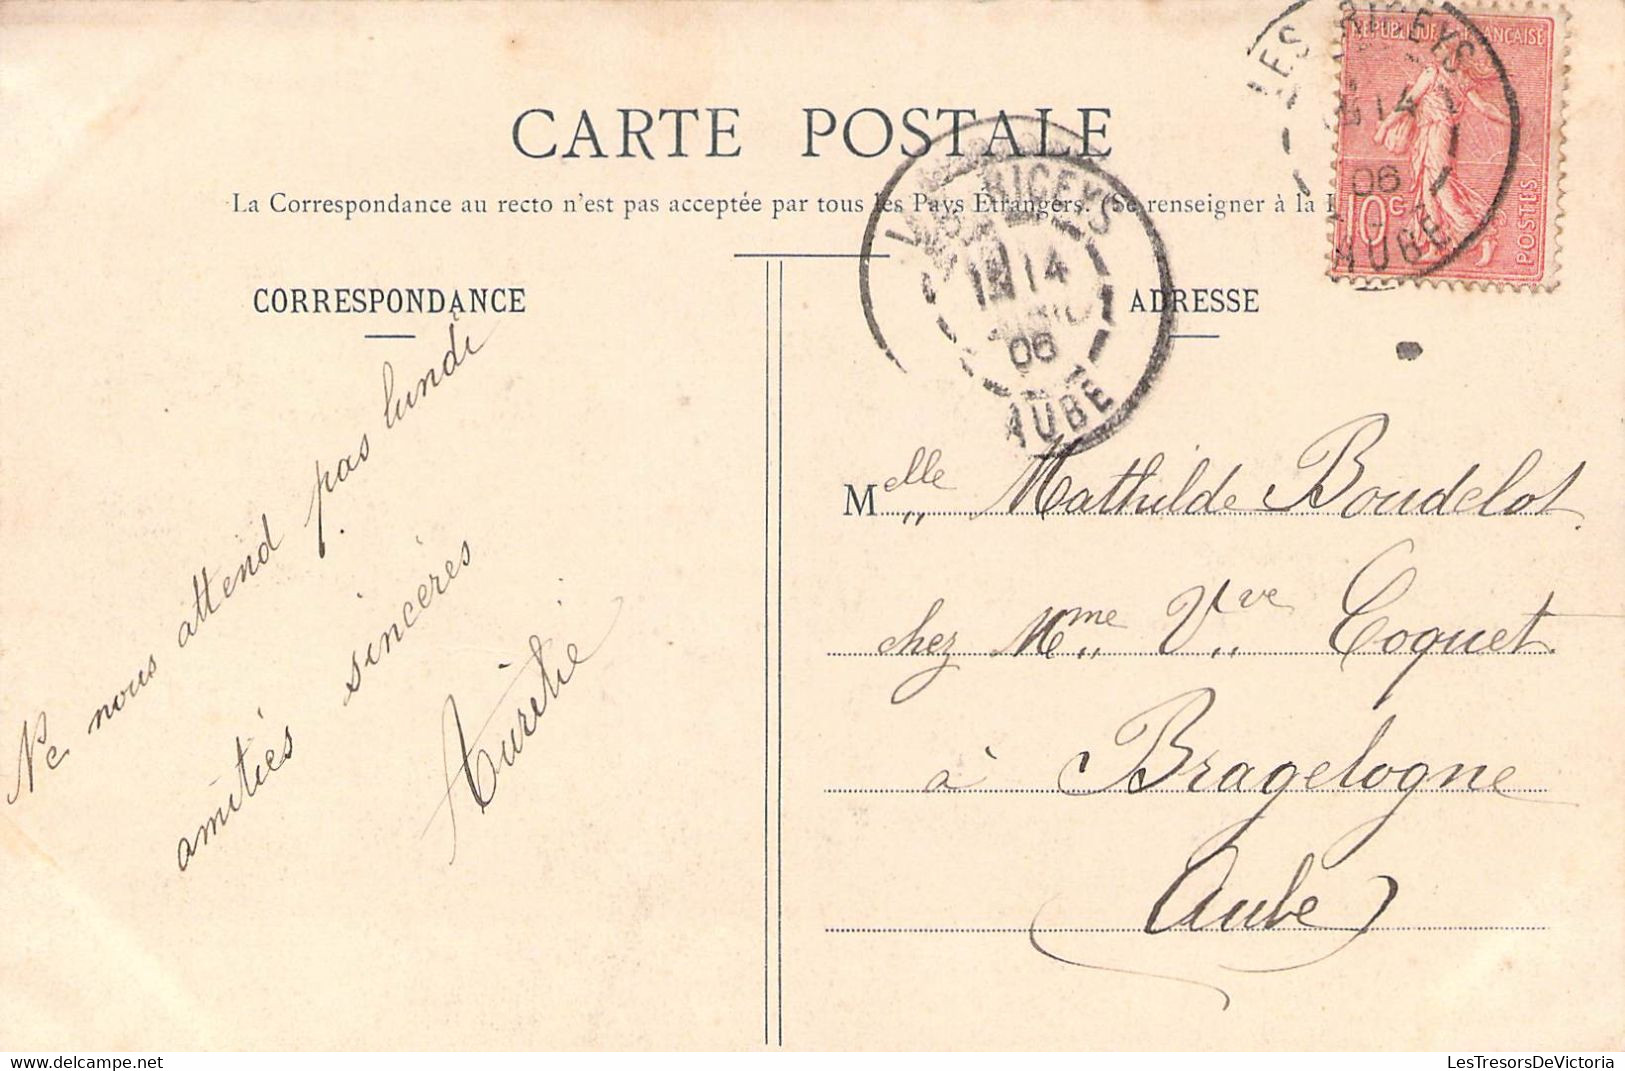 CARTE POSTALE
La Correspondance au recto n'est pas acceptée par tous les Pays Étrangers. (Se renseigner à la
CORRESPONDANCE
Ne nous attend pas lundi
amitiés sincères
Aurélie
ADRESSE
Melle Mathilde Boudelot
chez Mme Vve Coquet
à Bragelogne
Aube
LES RICEYS
14
06
AUBE
RÉPUBLIQUE FRANÇAISE
10c
POSTES
LES RICEYS
14
06
AUBE
LesTresorsDeVictoria